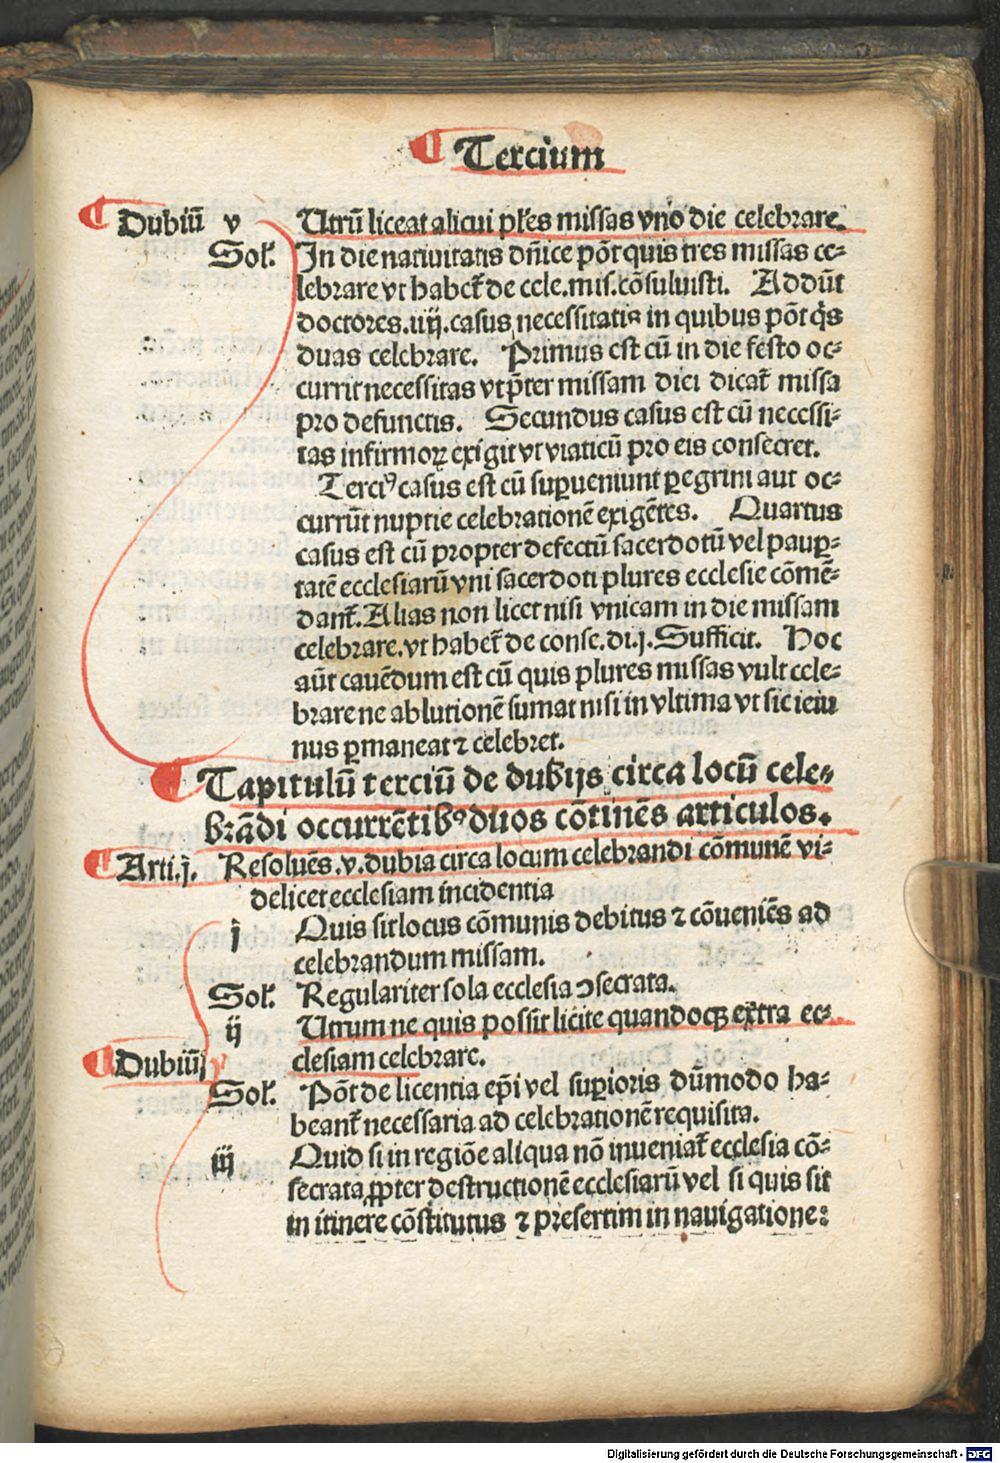 Tercium
Dubiū v Utrū liceat alicui pl'es missas vno die celebrare.
Sol'. In die natiuitatis dn̄ice pōt quis tres missas ce-
lebrare vt habet' de cele.mis.cōsuluisti. Addūt
doctores.iiij.casus necessitatis in quibus pōt q̇s
duas celebrare. Primus est cū in die festo oc-
currit necessitas vt p̄ter missam diei dicat' missa
pro defunctis. Secundus casus est cū necessi-
tas infirmoꝝ exigit vt viaticū pro eis consecret.
Terciꝰ casus est cū suꝑueniunt ꝑegrini aut oc-
currūt nuptie celebrationē exigētes. Quartus
casus est cū propter defectū sacerdotū vel pauꝑ-
tatē ecclesiarū vni sacerdoti plures ecclesie cōmē-
dant'. Alias non licet nisi vnicam in die missam
celebrare.vt habet' de conse.di.j.Sufficit. Hoc
aūt cauēdum est cū quis plures missas vult cele-
brare ne ablutionē sumat nisi in vltima vt sic ieiu
nus ꝑmaneat ⁊ celebret.
Capitulū terciū de dubijs circa locū cele-
brādi occurrētibꝰ duos cōtinēs articulos.
Arti.j. Resoluēs.v.dubia circa locum celebrandi cōmunē vi-
delicet ecclesiam incidentia
j Quis sit locus cōmunis debitus ⁊ cōueniēs ad
celebrandum missam.
Sol'. Regulariter sola ecclesia ↄsecrata.
ij Utrum ne quis possit licite quandocꝫ extra ec-
Dubiū clesiam celebrare.
Sol'. Pōt de licentia ep̄i vel suꝑioris dūmodo ha-
beant' necessaria ad celebrationē requisita.
iij Quid si in regiōe aliqua nō inueniat' ecclesia cō-
secrata ꝓpter destructionē ecclesiarū vel si quis sit
in itinere cōstitutus ⁊ presertim in nauigatione:
Digitalisierung gefördert durch die Deutsche Forschungsgemeinschaft - DFG